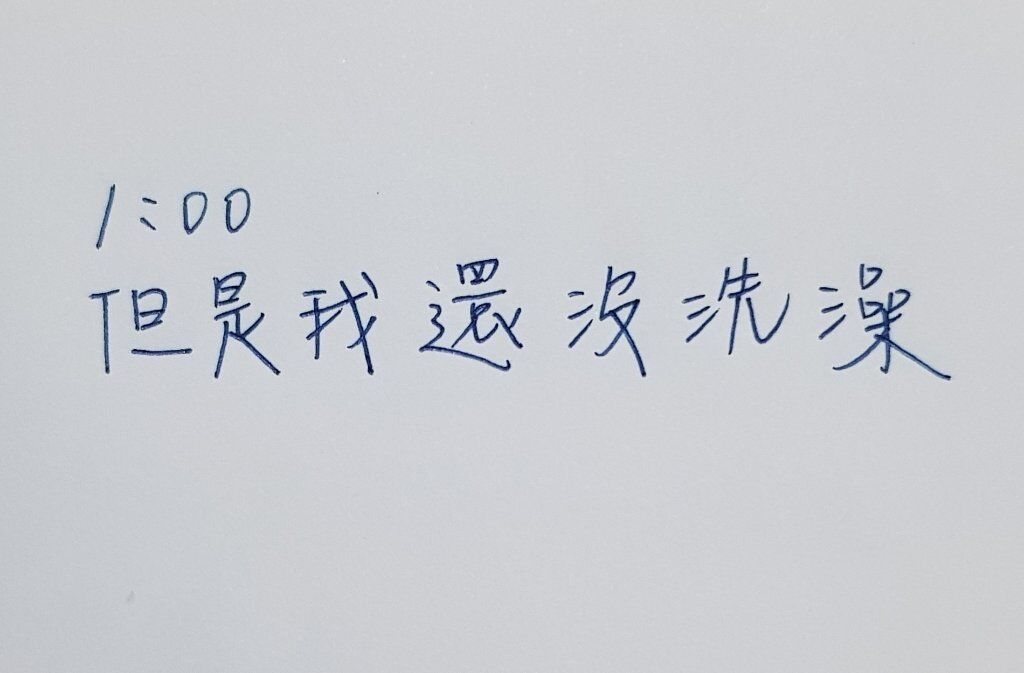 1:00
但是我還沒洗澡